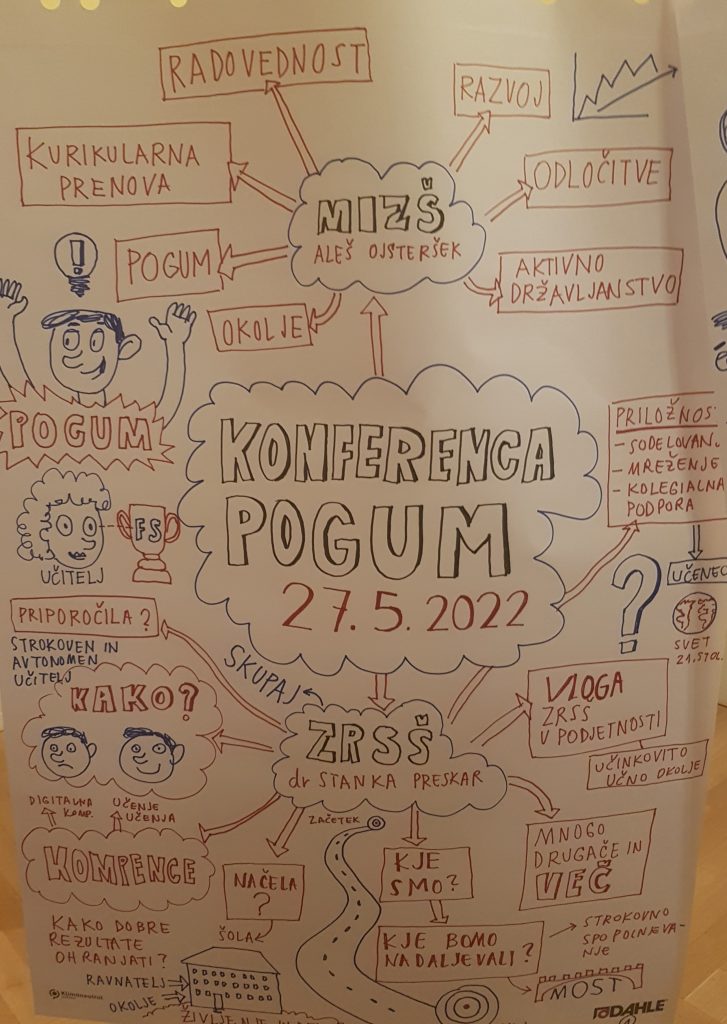 RADOVEDNOST
RAZVOJ
KURIKULARNA
PRENOVA
ODLOČITVE
MIZŠ
ALEŠ OJSTERŠEK
POGUM
AKTIVNO
DRŽAVLJANSTVO
OKOLJE
!
POGUM
KONFERENCA
POGUM
27.5.2022
PRILOŽNOS
- SODELOVANJ
- MREŽENJE
- KOLEGIALNA
PODPORA
FS
UČITELJ
UČENEC
?
SVET
21.STOL.
PRIPOROČILA?
STROKOVEN IN
AVTONOMEN
UČITELJ
SKUPAJ
KAKO?
ZRSŠ
dr STANKA PRESKAR
VLOGA
ZRSŠ
V PODJETNOSTI
UČINKOVITO
UČNO OKOLJE
DIGITALNA
KOMP.
UČENJE
UČENJA
KOMPENCE
NAČELA
?
ZAČETEK
KJE
SMO?
MNOGO
DRUGAČE IN
VEČ
KAKO DOBRE
REZULTATE
OHRANJATI?
ŠOLA
KJE BOMO
NADALJEVALI?
STROKOVNO
SPOPOLNJEVA-
NJE
MOST
RAVNATELJ
OKOLJE
Klimaneutral
DAHLE